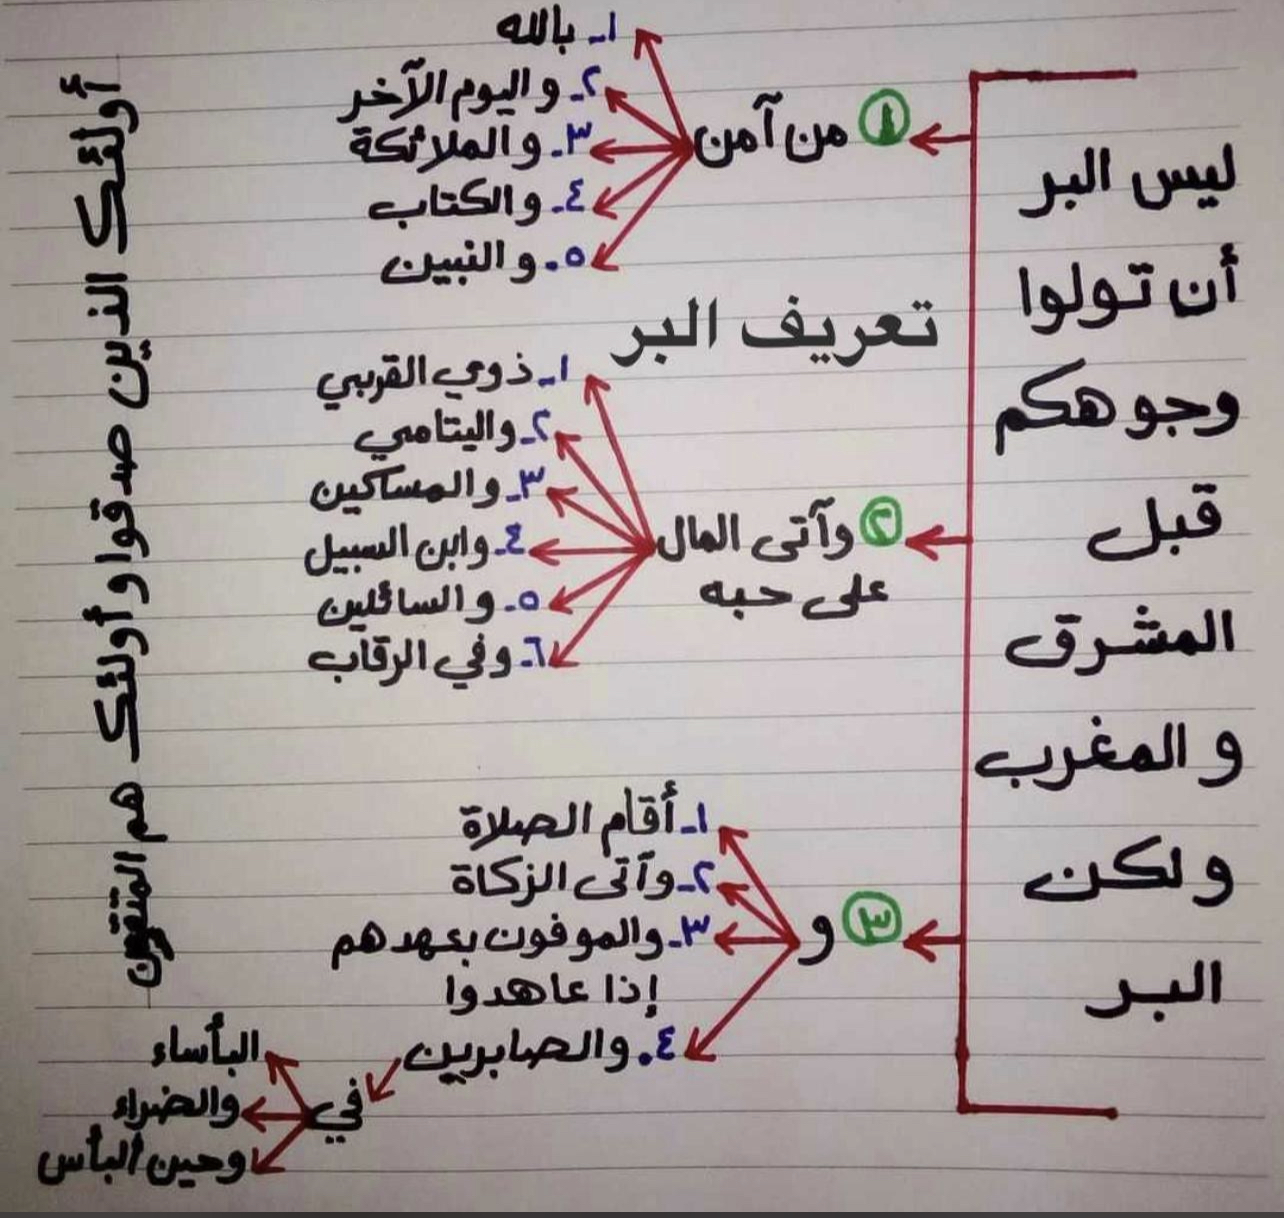 ليس البر
أن تولوا
وجوهكم
قبل
المشرق
و المغرب
ولكن
البر
١ من آمن
١- بالله
٢- واليوم الآخر
٣- والملائكة
٤- والكتاب
٥- والنبين
تعريف البر
٢ وآتى المال
على حبه
١- ذوي القربي
٢- واليتامي
٣- والمساكين
٤- وابن السبيل
٥- والسائلين
٦- وفي الرقاب
٣ و
١- أقام الصلاة
٢- وآتى الزكاة
٣- والموفون بعهدهم
إذا عاهدوا
٤. والصابرين
في
البأساء
والضراء
وحين البأس
أولئك الذين صدقوا وأولئك هم المتقون